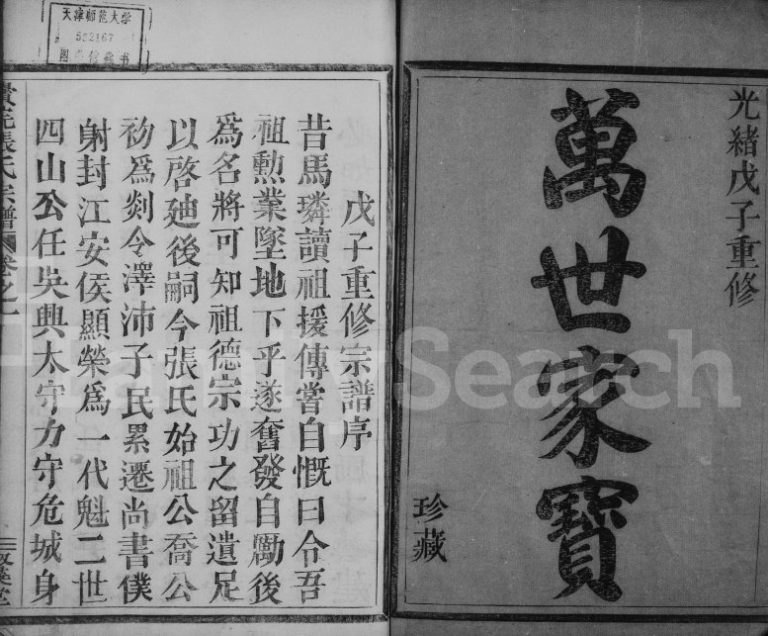 光緒戊子重修
萬世家寶
珍藏
天津师范大学
戊子重修宗譜序
昔馬璘讀祖援傳嘗自慨曰令吾
祖勳業墜地下乎遂奮發自勵後
爲名將可知祖德宗功之留遺足
以啓廸後嗣今張氏始祖公喬公
初爲剡令澤沛子民累遷尚書僕
射封江安侯顯榮爲一代魁二世
四山公任吳興太守力守危城身
張氏宗譜 卷之一
FamilySearch